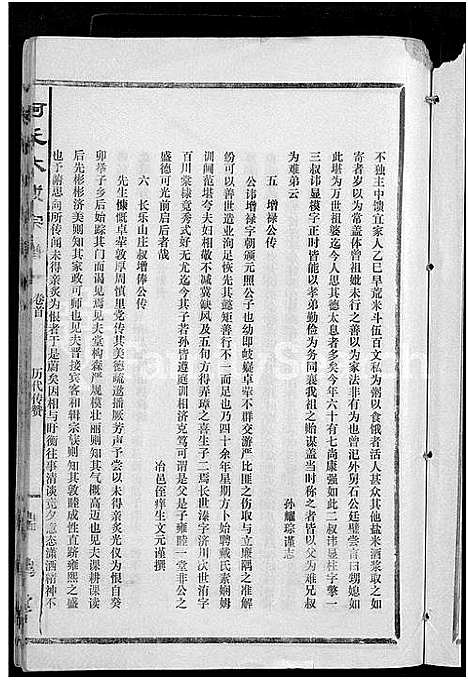 不独主中馈宜家人乙巳早荒米斗伍百文私为粥以食饿者活人甚众其他盐米酒浆取之如
寄者岁以为常盖体曾祖妣未行之善以为家法非有为也曾祀外舅石公廷璧尝言曰甥媳如
此堪为万世祖婆迄今人思其德太息者多矣今年六十有七尚康强如此二叔讳显柱字擎一
三叔讳显模字正时皆能以孝弟勤俭为务同襄我祖之贻谋盖当时称之者皆以父为难兄叔
为难弟云
孙耀琮谨志
五 增禄公传
公讳增禄字朝颁元照公子也幼即岐嶷卓荦不群交游严比匪之伤取与立廉隅之准解
纷可以善世造业洵足恢先其懿矩善行不一而足也乃四十余年星期方卜始聘戴氏素娴姆
训阃范堪夸夫妇相敬不减冀缺风及五旬方得弄璋之喜生子二焉长世溱字济川次世洧字
百川棠棣竟秀式好无尤迄今其子若孙皆遵庭训相济克笃可谓是父是子雍睦一堂非公之
盛德可光前启后者哉
冶邑侄痒生文元谨撰
六 长乐山庄叔增俸公传
先生慷慨卓荦敦厚周慎里党传其美德疏遬播厥芳声予尝以未得亲炙光仪为恨自癸
卯举子乡后始踪其门而谒见焉见夫堂构森严规模壮丽则知其气概高迈也见夫课耕课读
后先彬彬济美则知其家政可师也见夫晋接宾客和辑宗族则知其敦睦成性直跻雍熙之盛
也予溯思向所传闻未得亲炙为恨者于是蔚矣因相与盱衡往事清谈竞夕意态潇洒精神不
卷首
历代传赞